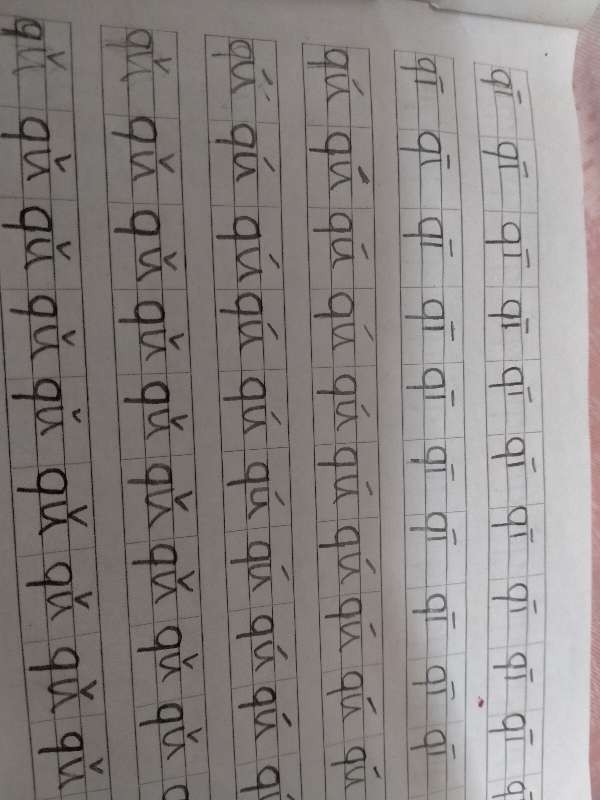 qī qī qī qī qī qī qī qī qī qī
qī qī qī qī qī qī qī qī qī qī
qú qú qú qú qú qú qú qú qú qú
qú qú qú qú qú qú qú qú qú qú
qǔ qǔ qǔ qǔ qǔ qǔ qǔ qǔ qǔ
qǔ qǔ qǔ qǔ qǔ qǔ qǔ qǔ qǔ